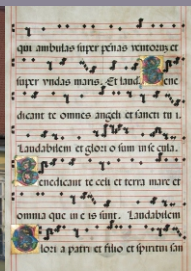 qui ambulas super penas ventorum et
super vndas maris. Et laud. Bene
dicant te omnes angeli et sancti tu i.
Laudabilem et glori o sum in se cula.
Benedicant te celi et terra mare et
omnia que in e is sunt. Laudabilem
Glori a patri et filio et spiritui san